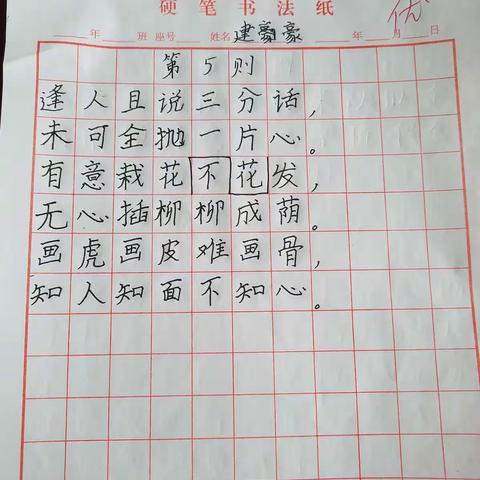 硬笔书法纸
优
年 班 座号 姓名 建豪豪 年 月 日
第5则
逢人且说三分话，
未可全抛一片心。
有意栽花不花发，
无心插柳柳成荫。
画虎画皮难画骨，
知人知面不知心。